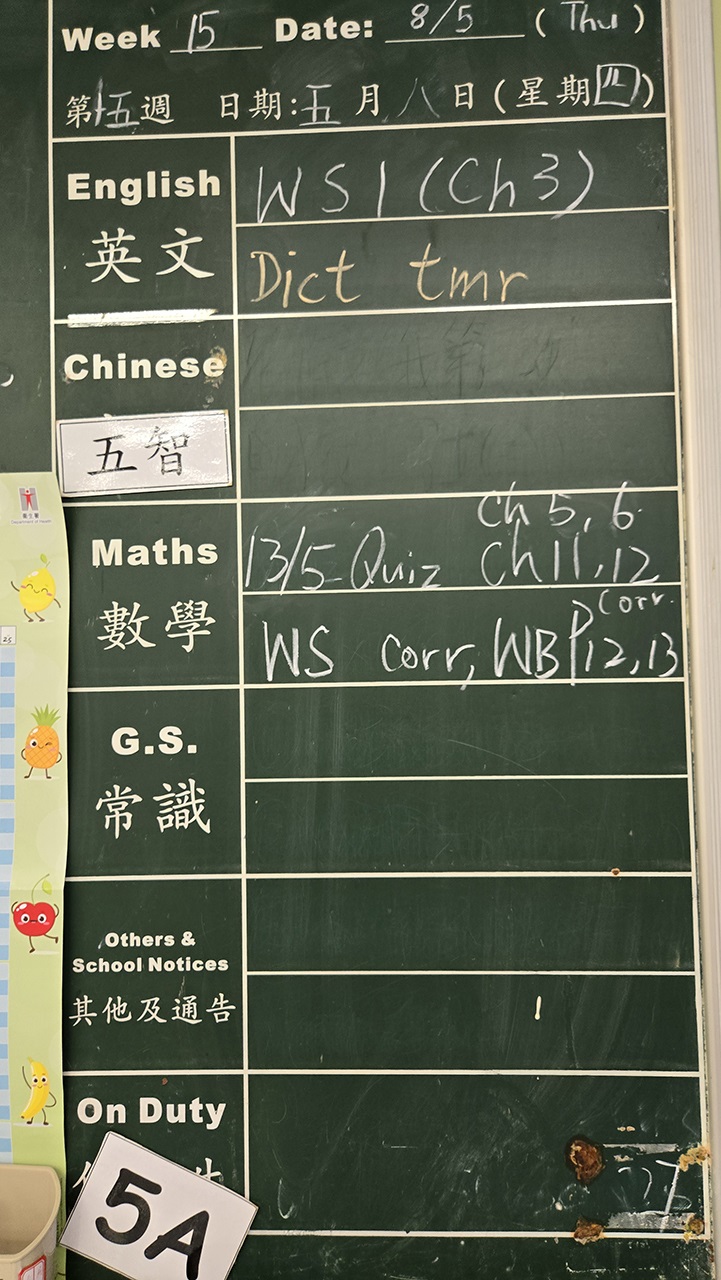 Week 15 Date: 8/5 (Thu)
第十五週 日期:五月八日(星期四)
English
英文
WS1 (Ch3)
Dict tmr
Chinese
五智
Maths
數學
Ch 5, 6
13/5 Quiz Ch11, 12
Corr.
WS corr, WB P12, 13
G.S.
常識
Others &
School Notices
其他及通告
On Duty
5A
25